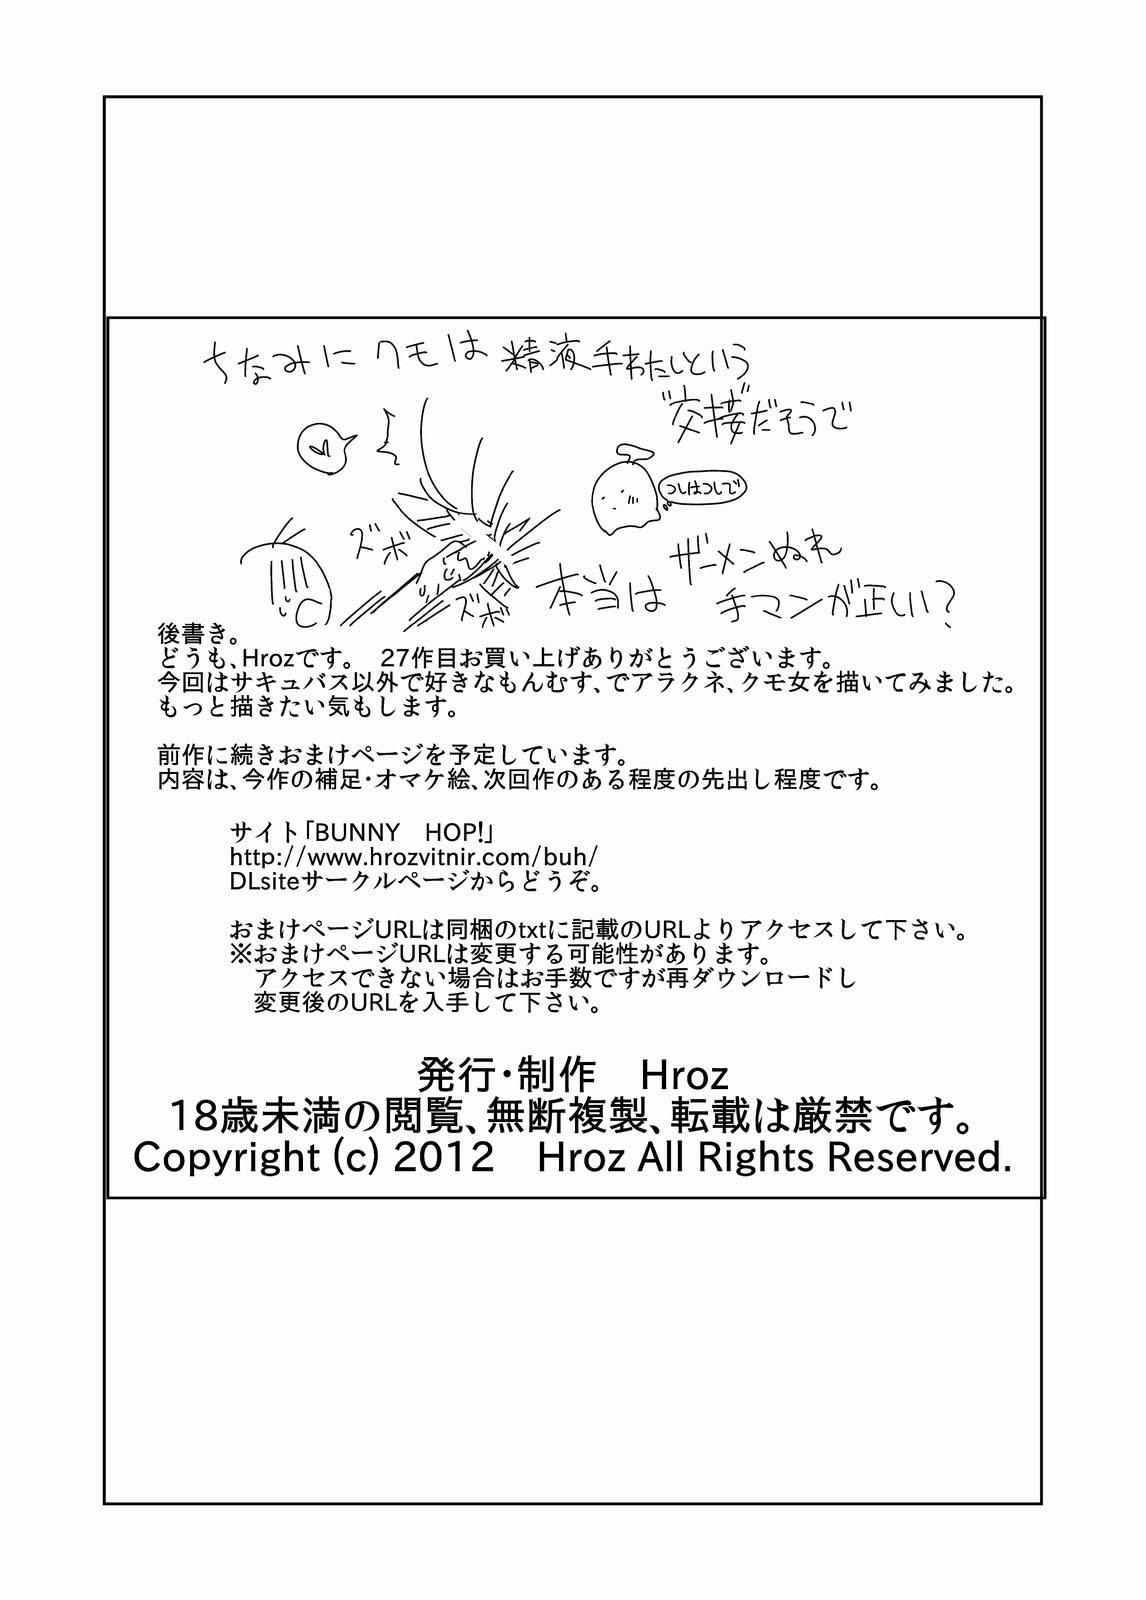 ちなみに クモは 精液手わたしという
"交接"だそうで
つしはつしで
ズボ
ズボ
本当は ザーメンぬれ
手マンが正しい?
後書き。
どうも、Hrozです。 27作目お買い上げありがとうございます。
今回はサキュバス以外で好きなもんむす、でアラクネ、クモ女を描いてみました。
もっと描きたい気もします。
前作に続きおまけページを予定しています。
内容は、今作の補足・オマケ絵、次回作のある程度の先出し程度です。
サイト「BUNNY HOP!」
http://www.hrozvitnir.com/buh/
DLsiteサークルページからどうぞ。
おまけページURLは同梱のtxtに記載のURLよりアクセスして下さい。
※おまけページURLは変更する可能性があります。
アクセスできない場合はお手数ですが再ダウンロードし
変更後のURLを入手して下さい。
発行・制作 Hroz
18歳未満の閲覧、無断複製、転載は厳禁です。
Copyright (c) 2012 Hroz All Rights Reserved.